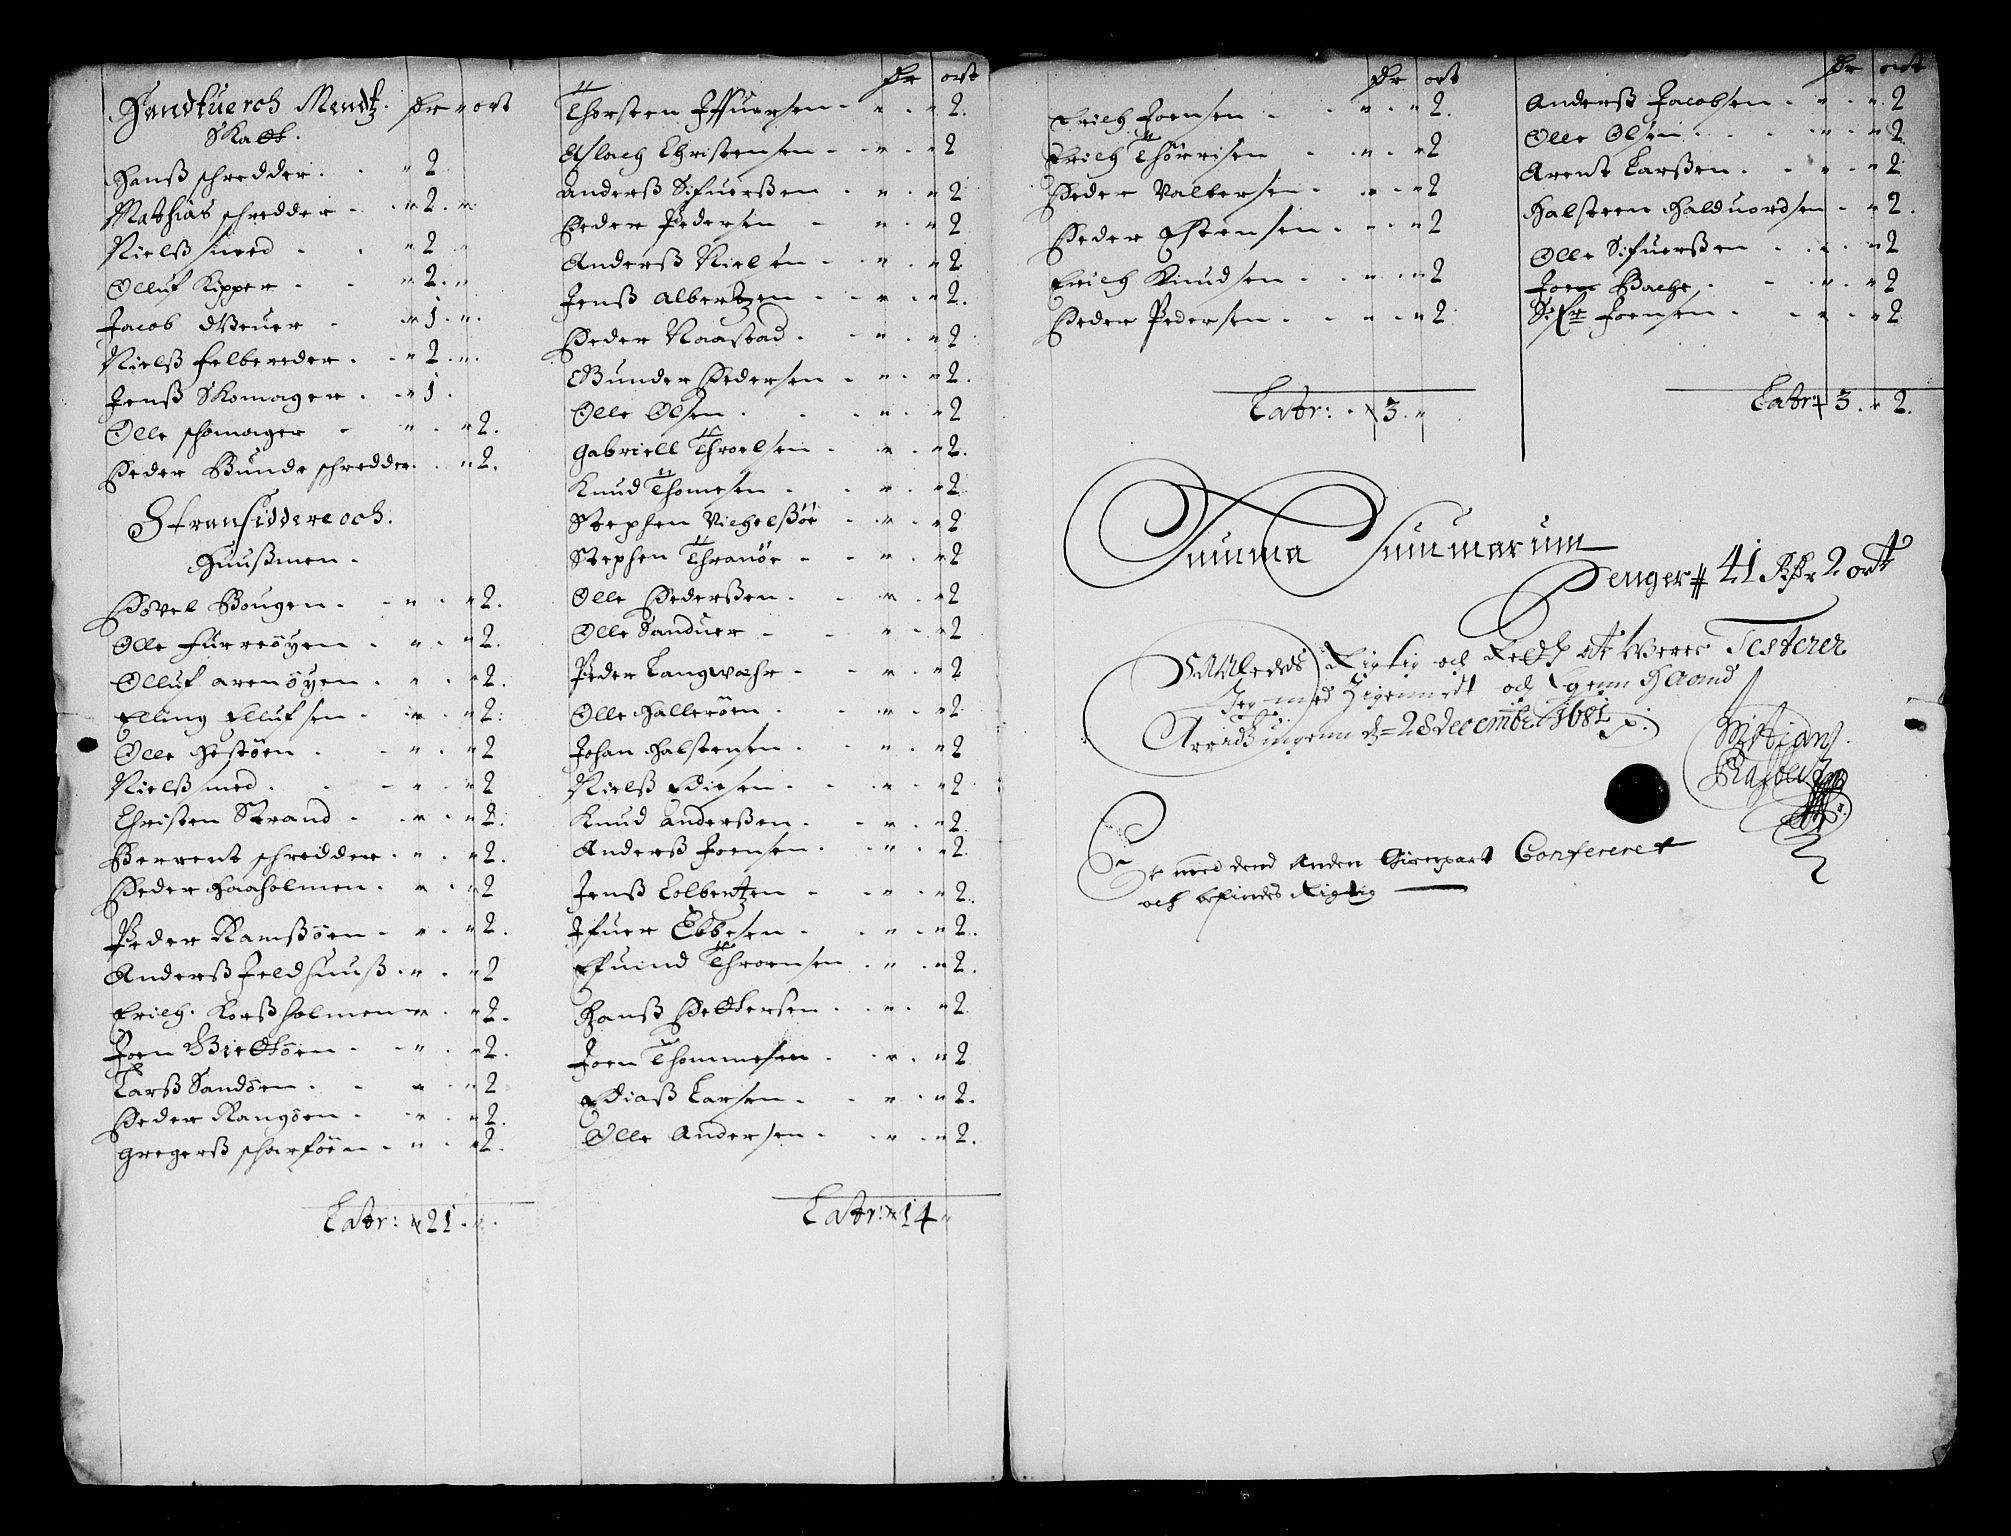 Handtuerch Mendtz. Dr " ort
Skatt.
Hanß schredder. " 2
Mathias schredder " 2 "
Nielß smed " 2 "
Olluf Kipper " 2 "
Jacob Weuer " 1 "
Nielß felbereder " 2 "
Jenß Skomager " 1
Olle schomager " " 2.
Peder Bunde schredder " 2.
Stransiddere och
Huußmen
Povel Bougen " " 2.
Olle Furreöyen " " 2.
Olluf arenöyen " " 2.
Elling Ellufsen " " 2
Olle Hestöen " " 2
Nielß smed " " 2
Christen Strand " " 2
Berrent schredder " " 2.
Peder Haaholmen " " 2
Peder Ramßöen " " 2.
Anderß Feldhuuß " " 2
Erich Korßholmen " " 2.
Joen Biettöen " " 2.
Larß Sandöen " " 2
Peder Rangöen " " 2.
Gregerß scharföen " " 2.
Latr: 21 "
Dr ort
Thorsten Jffuersen " " 2.
Aslach Christensen " " 2
anderß Sifuerßen " " 2
Peder Pedersen " " 2
Anderß Nielsen " " 2
Jenß Albertzen " " 2.
Peder Naastad " " 2
Gunder Pedersen " " 2.
Olle Olsen " " 2
Gabriell Throelsen " " 2.
Knud Thomesen " " 2
Stephen Vichelßöe " " 2
Stephen Thranöe " " 2
Olle Pederßen " " 2
Olle Sanduer " " 2
Peder Langwahr " " 2
Olle Halleröen " " 2
Johan Halstensen " " 2
Nielß Ediesen " " 2
Knud anderßen " " 2
Anderß Joensen " " 2
Jenß Colbentzen " " 2.
Jfuer Ebbesen " " 2.
Efuind Throensen " " 2.
Hanß Pettersen " " 2
Joen Thommesen " " 2
Ediaß Larsen " " 2.
Olle Andersen " " 2.
Latr: 14 "
Dr ort
Erich Joensen " " 2.
Erich Thörrisen " " 2
Peder Valtersen " " 2
Peder Estensen " " 2
Erich Knudsen " " 2
Peder Pedersen " " 2
Latr: 3 "
Dr ort
Anderß Jacobsen " " 2
Olle Olsen " " 2
Arent Larßen " " 2
Halsteen Halduordsen " 2.
Olle Sifuerßen " " 2
Joen Bache " " 2
Sifr Joensen " " 2
Latr: 3 " 2.
Summa Summarum
Penger 41 Rdr 2 ort
Saaledeß Rigtig och Rett at Were Testerer
Jeg med Zigennedt och Egenn Haand
d= 28 decembr: 1681
Er med dend Anden Gienpart Confereret
och befindes Rigtig